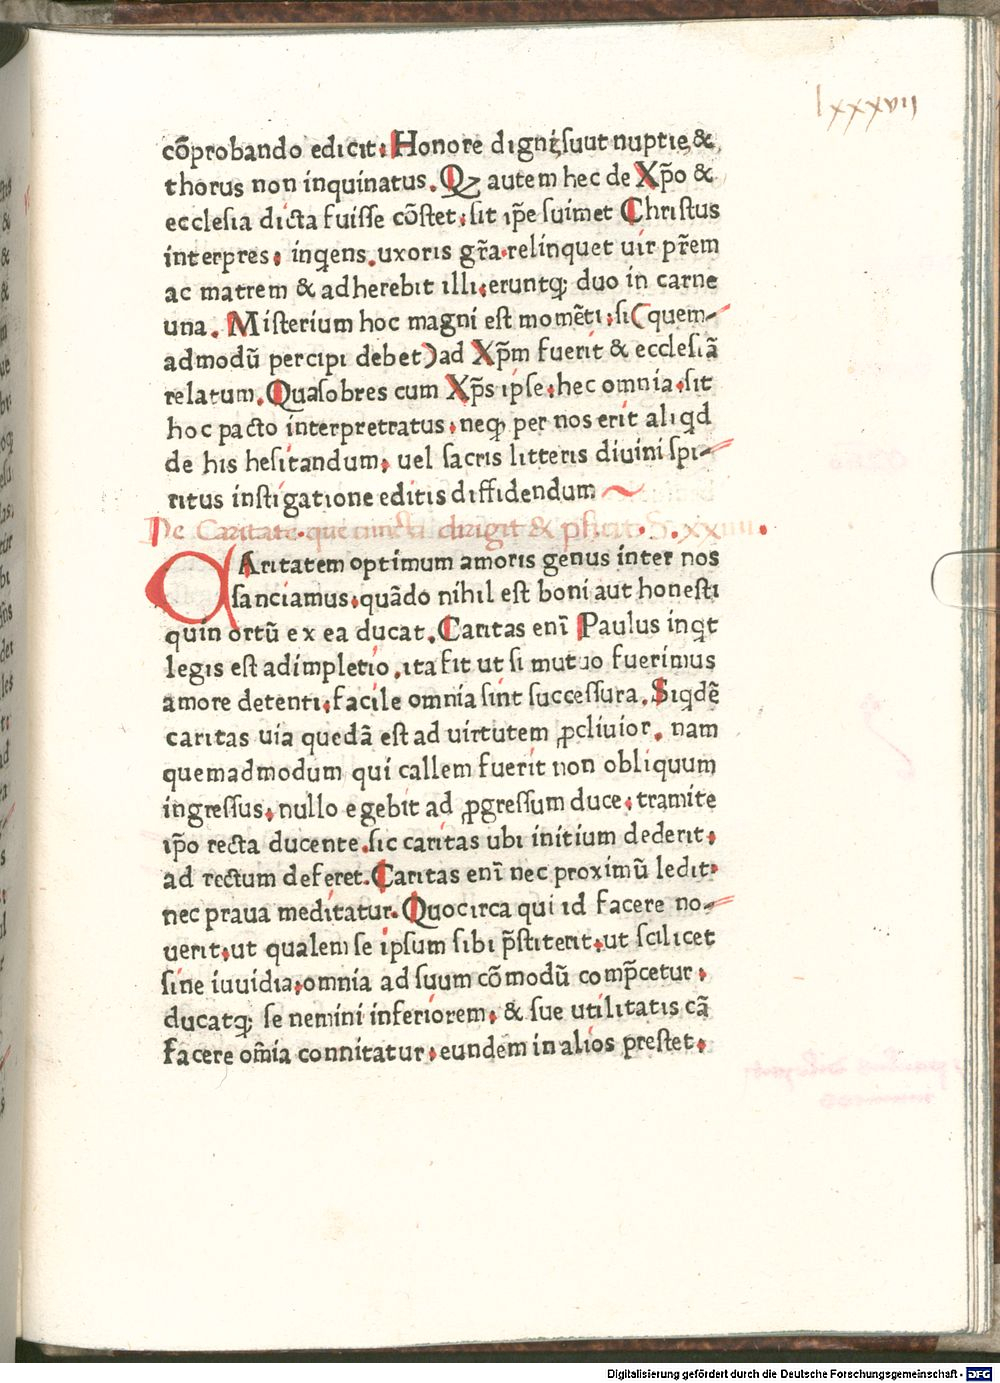 lxxxvii
cōprobando edicit: Honore digni suut nuptię &
thorus non inquinatus. Qꝫ autem hec de Xp̄o &
ecclesia dicta fuisse cōstet: sit ip̄e suimet Christus
interpres: inqens. uxoris gr̄a relinquet uir pr̄em
ac matrem & adherebit illi: eruntqꝫ duo in carne
una. Misterium hoc magni est momēti: si (quem-
admodū percipi debet) ad Xp̄m fuerit & ecclesiā
relatum. Quasobres cum Xp̄s ipse: hec omnia: sit
hoc pacto interpretratus: neqꝫ per nos erit aliqd
de his hesitandum: uel sacris litteris diuini spi-
ritus instigatione editis diffidendum
De Caritate que cuncta dirigit & ꝑficit. §. xxiiii.
CAritatem optimum amoris genus inter nos
sanciamus: quādo nihil est boni aut honesti
quin ortū ex ea ducat. Caritas enī Paulus inqt
legis est adimpletio. ita fit ut si mutuo fuerimus
amore detenti: facile omnia sint successura. Siqdē
caritas uia quedā est ad uirtutem ꝓcliuior. nam
quemadmodum qui callem fuerit non obliquum
ingressus: nullo egebit ad ꝓgressum duce: tramite
ip̄o recta ducente. sic caritas ubi initium dederit:
ad rectum deferet. Caritas enī nec proximū ledit:
nec praua meditatur. Quocirca qui id facere no-
uerit: ut qualem se ipsum sibi p̄stiterit: ut scilicet
sine iuuidia: omnia ad suum cōmodū comp̄cetur:
ducatqꝫ se nemini inferiorem: & sue utilitatis cā
facere om̄ia connitatur: eundem in alios prestet:
Digitalisierung gefördert durch die Deutsche Forschungsgemeinschaft - DFG